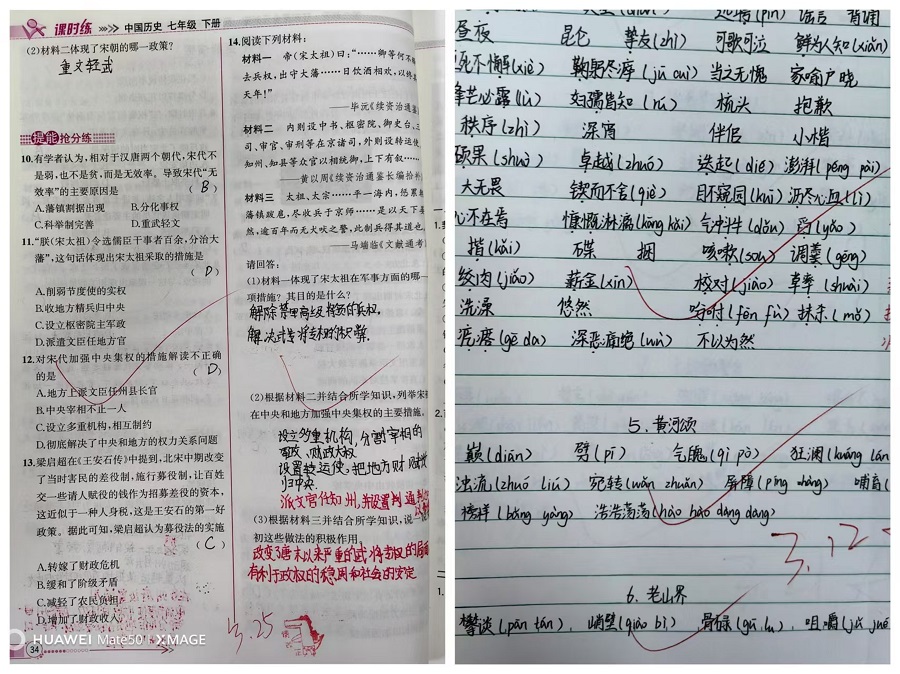 课时练 中国历史 七年级 下册
(2)材料二体现了宋朝的哪一政策?
重文轻武
提能抢分练
10.有学者认为,相对于汉唐两个朝代,宋代不
是弱,也不是贫,而是无效率,导致宋代“无
效率”的主要原因是 ( B )
A.藩镇割据出现 B.分化事权
C.科举制完善 D.重武轻文
11.“朕(宋太祖)令选儒臣干事者百余,分治大
藩”,这句话体现出宋太祖采取的措施是
( D )
A.削弱节度使的实权
B.收地方精兵归中央
C.设立枢密院主军政
D.派遣文臣任地方官
12.对宋代加强中央集权的措施解读不正确
的是 ( D )
A.地方上派文臣任州县长官
B.中央宰相不止一人
C.设立多重机构,相互制约
D.彻底解决了中央和地方的权力关系问题
13.梁启超在《王安石传》中提到,北宋中期改变
了当时害民的差役制,施行募役制,让百姓
交一些请人赋役的钱作为招募差役的资本,
这近似于一种人身税,这是王安石的第一好
政策。据此可知,梁启超认为募役法的实施
( C )
A.转嫁了财政危机
B.缓和了阶级矛盾
C.减轻了农民负担
D.增加了财政收入
34
HUAWEI Mate50 XMAGE
14.阅读下列材料:
材料一 帝(宋太祖)曰:“……卿等何不
去兵权,出守大藩……日饮酒相欢,以终
天年!”
——毕沅《续资治通鉴
材料二 内则设中书、枢密院、御史台、三
司、审官、审刑等在京诸司,外则设转运使
知州、知县等众官以相统御,上下有叙……
——黄以周《续资治通鉴长编拾补
材料三 太祖、太宗……平一海内,惩累
藩镇跋扈,尽收兵于京师……是以天下
然,逾百年而无犬吠之警,此制兵得其道也
——马端临《文献通考
请回答:
(1)材料一体现了宋太祖在军事方面的哪一
项措施?其目的是什么?
解除禁军高级将领的兵权,
解决武将
(2)根据材料二并结合所学知识,列举宋
在中央和地方加强中央集权的主要措施。
设立多重机构,分割宰相的
军政、财政大权
设置转运使,把地方财赋
归中央.
派文官任知州,并设置通判
(3)根据材料三并结合所学知识,说一
初这些做法的积极作用。
改变了唐末以来严重的武将专权的局面
有利于政权的稳固和社会的安定
3.25
昼夜 昆仑 挚友(zhì) 可歌可泣 鲜为人知(xiǎn)
死不懈(xiè) 鞠躬尽瘁(jū cuì) 当之无愧 家喻户晓
锋芒必露(lù) 妇孺皆知(rú) 梳头 抱歉
秩序(zhì) 深宵 伴侣 小楷
硕果(shuò) 卓越(zhuó) 迭起(dié) 澎湃(péng pài)
大无畏 锲而不舍(qiè) 目不窥园(kuī) 沥尽心血(lì)
心不在焉 慷慨淋漓(kāng kǎi) 气冲斗牛(dǒu)
揩(kāi) 碟 捆 咳嗽(sou) 调羹(gēng)
绞肉(jiǎo) 薪金(xīn) 校对(jiào) 草率(shuài)
洗澡 悠然 吩咐(fēn fù) 抹杀(mǒ)
疙瘩(gē da) 深恶痛绝(wù) 不以为然
5.黄河颂
巅(diān) 劈(pī) 气魄(qì pò) 狂澜(kuáng lán
浊流(zhuó liú) 宛转(wǎn zhuǎn) 屏障(píng zhàng) 哺育(
榜样(bǎng yàng) 浩浩荡荡(hào hào dàng dàng)
3.12
6.老山界
攀谈(pān tán)、峭壁(qiào bì)、骨碌(gū lu)、咀嚼(jǔ jué